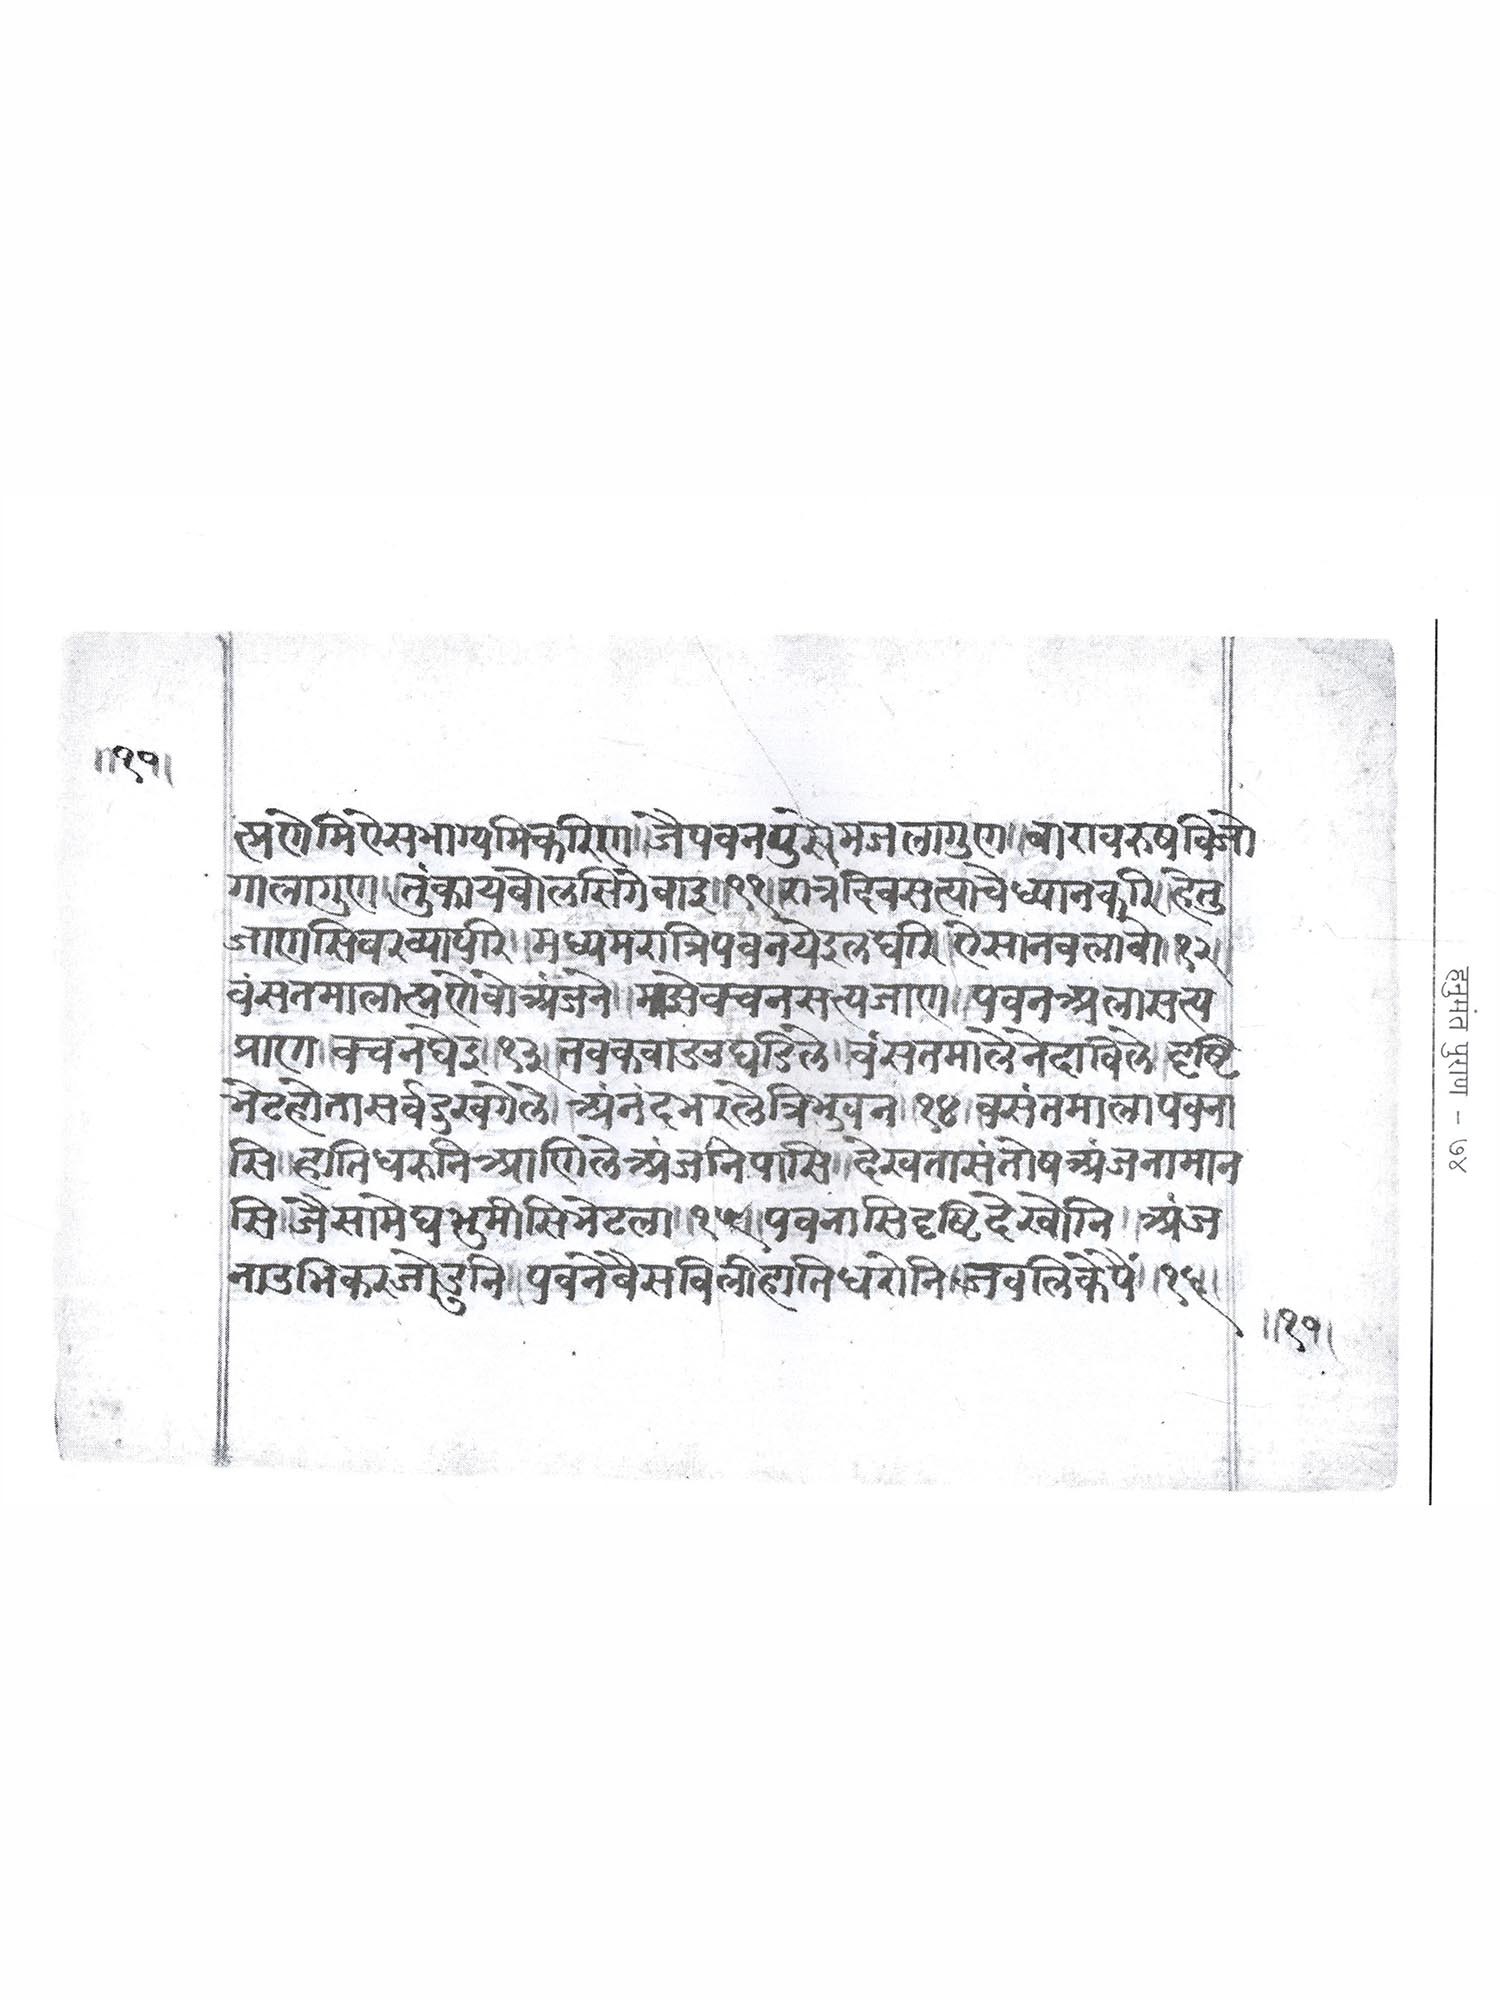 ॥१९॥
म्हणे मि ऐसभाग्य मि करिण ॥ जै पवन पुसे मज लागुण ॥ बारा वरुष विजो
गालागुण ॥ तुं काय बोलसि गे बाइ ॥११॥ रात्र दिवस त्याचे ध्यान करि ॥ हे तु
जाणसि बरव्यापरि ॥ मध्यम रात्रि पवन येइल घरि ॥ ऐसा नवलावो ॥१२॥
वंसतमाला म्हणे वो अंजने ॥ माझे वचन सत्य जाण ॥ पवन अला सत्य
प्राण ॥ वचन घेइ ॥१३॥ तव कवाड उघडिले ॥ वंसतमालेने दाविले ॥ दृष्टि
भेट होता सर्व दुख गेले ॥ अंनंद भरले त्रिभुवन ॥१४॥ वसंतमाला पवना
सि ॥ हाति धरुनि आणिले अंजनिपासि ॥ देखता संतोष अंजना मान
सि ॥ जैसा मेघ भुमीसि भेटला ॥१५॥ पवनासि दृष्टि देखोनि ॥ अंज
ना उभि कर जोडुनि ॥ पवने बैसविली हाति धरोनि ॥ जवलिकेपैं ॥१६॥
॥१९॥
हनुमंत पुराण - ७४